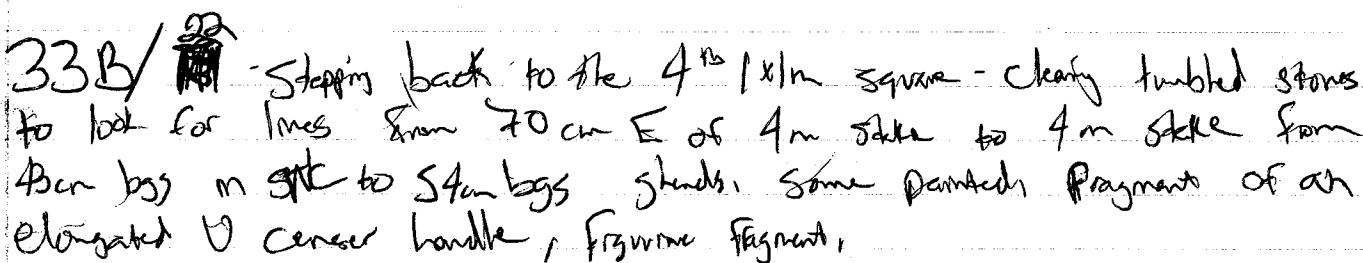 33B/22 - Stepping back to the 4th 1x1m square - clearing tumbled stones
to look for lines from 70 cm E of 4m stake to 4m stake from
43cm bgs in to 54cm bgs sherds, some painted, fragment of an
elongated U censer handle, figurine fragment,